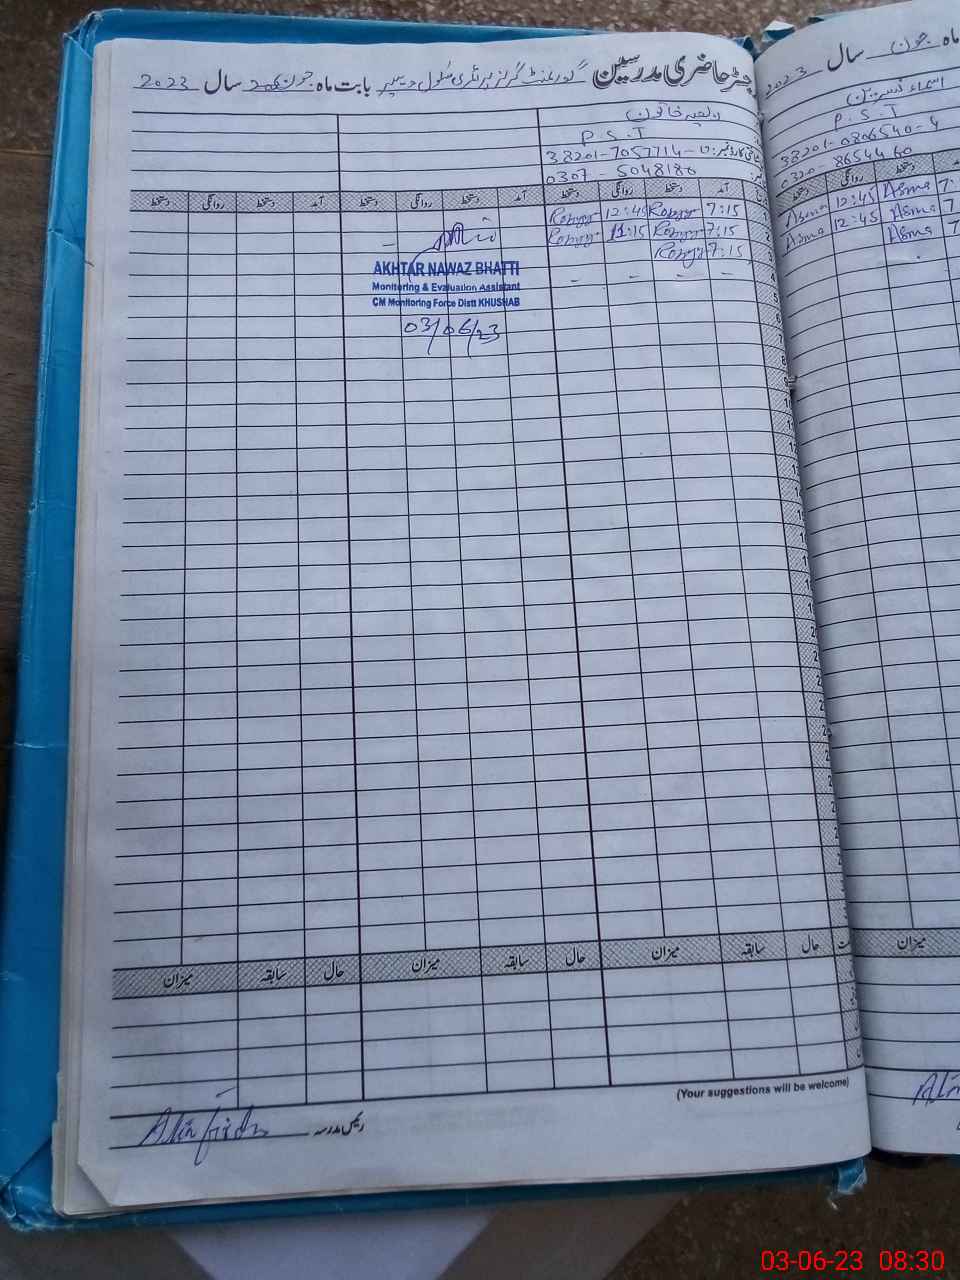 رجسٹر حاضری مدرسین گورنمنٹ گرلز پرائمری سکول بابت ماہ جون سال 2023
خاتون
P.S.T
38201-7057714-0
0307 - 5048186
آمد دستخط روانگی دستخط آمد دستخط روانگی دستخط آمد دستخط روانگی دستخط
7:15 12:45
7:15 11:15
7:15
- - - -
AKHTAR NAWAZ BHATTI
Monitoring & Evaluation Assistant
CM Monitoring Force Distt KHUSHAB
03/06/23
حال سابقہ میزان حال سابقہ میزان حال سابقہ میزان
(Your suggestions will be welcome)
رئیس مدرسہ
ماہ جون سال 2023
اسماء نسرین
P.S.T
38201-0806540-4
0320-8654460
دستخط روانگی دستخط
7: Asma 12:45 Asma
7 Asma 12:45 Asma
7 Asma
میزان
03-06-23 08:30